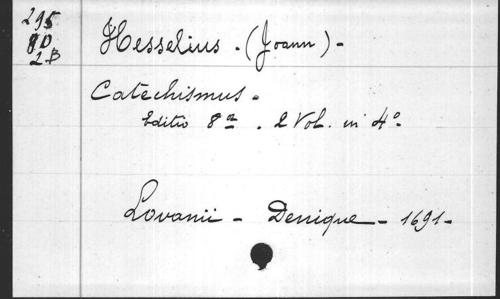 295
8D
2B
Hesselius. (Joann) -
Catechismus.
Editio 8a. 2 Vol. in 4o.
Lovanii - Denique - 1691 -